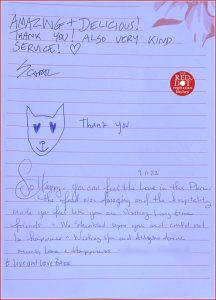 AMAZING + DELICIOUS!
THANK YOU! ALSO VERY KIND
SERVICE! ♡
RED
HOT
vegetarian
kitchen
Thank you.
9.11.22
So Happy - you can feel the love in this Place.
The food was amazing and the hospitality
made you feel like you are visiting long time
friends - We stumbled upon you and could not
be happier - Wishing you and everyone
much love & Happiness -
& live and love